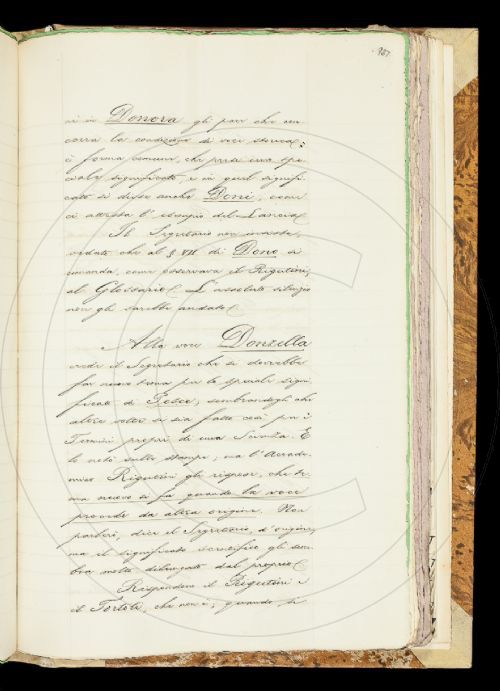 957
ni in Donora gli pare che con
corra la condizione di voce storica;
è forma comune, che prese una spe
ciale significato, e in quel signifi
cato si disse anche Doni, come
ci attesta l'esempio del Lancia.
Il Segretario non insiste,
veduto che al § VII di Dono si
rimanda, come osservava il Rigutini,
al Glossario. L'assoluto silenzio
non gli sarebbe andato.
Alla voce Donzella
vede il Segretario che si dovrebbe
far nuovo tema per lo speciale signi
ficato di Pesce, sembrandogli che
altre volte si sia fatto così per i
Termini propri di una Scienza. E
lo notò sulla stampa; ma l'Accade
mico Rigutini gli rispose, che te
ma nuovo si fa quando la voce
procede da altra origine. Non
parlerò, dice il Segretario, d'origine,
ma il significato scientifico gli sem
bra molto dilungato dal proprio.
Rispondono il Rigutini e
il Tortoli, che non è; quando, si